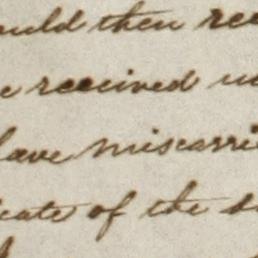 ould then rec
e received u
have miscarri
icate of the s